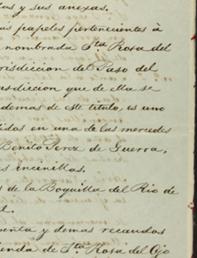 y sus anexas.
papeles pertenecientes à
nombrada Sta. Rosa del
jurisdiccion del Paso del
jurisdiccion que de ella se
demas de Ste titulo, es uno
en una de las mercedes
Benito Perez de Guerra,
incenillas.
de la Boquilla del Rio de
y demas recaudos
de Sta. Rosa del Ojo